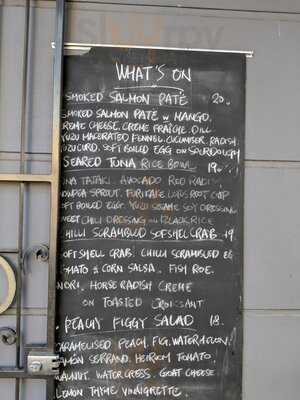 WHAT'S ON
SMOKED SALMON PATÉ 20.
SMOKED SALMON PATÉ W MANGO,
CREME CHEESE, CREME FRAÎCHE, DILL
YUZU MACERATED FENNEL, CUCUMBER, RADISH
YUZU CURD, SOFT BOILED EGG ON SOURDOUGH
SEARED TUNA RICE BOWL 19.
TUNA TATAKI, AVOCADO RED RADISH
SPROUT, FURIKAKE LOTUS ROOT CHIP
SOFT BOILED EGG. YUZU SESAME SOY DRESSING
SWEET CHILI DRESSING ON BLACK RICE
CHILLI SCRAMBLED SOFTSHELL CRAB 19.
SOFT SHELL CRAB, CHILLI SCRAMBLED EG
TOMATO & CORN SALSA, FISH ROE,
NORI, HORSE RADISH CREME
ON TOASTED CROISSANT
PEACHY FIGGY SALAD 18.
CARAMELISED PEACH, FIG, WATERMELON,
JAMÓN SERRANO, HEIRLOOM TOMATO,
WALNUT, WATERCRESS, GOAT CHEESE,
LEMON THYME VINIGRETTE.